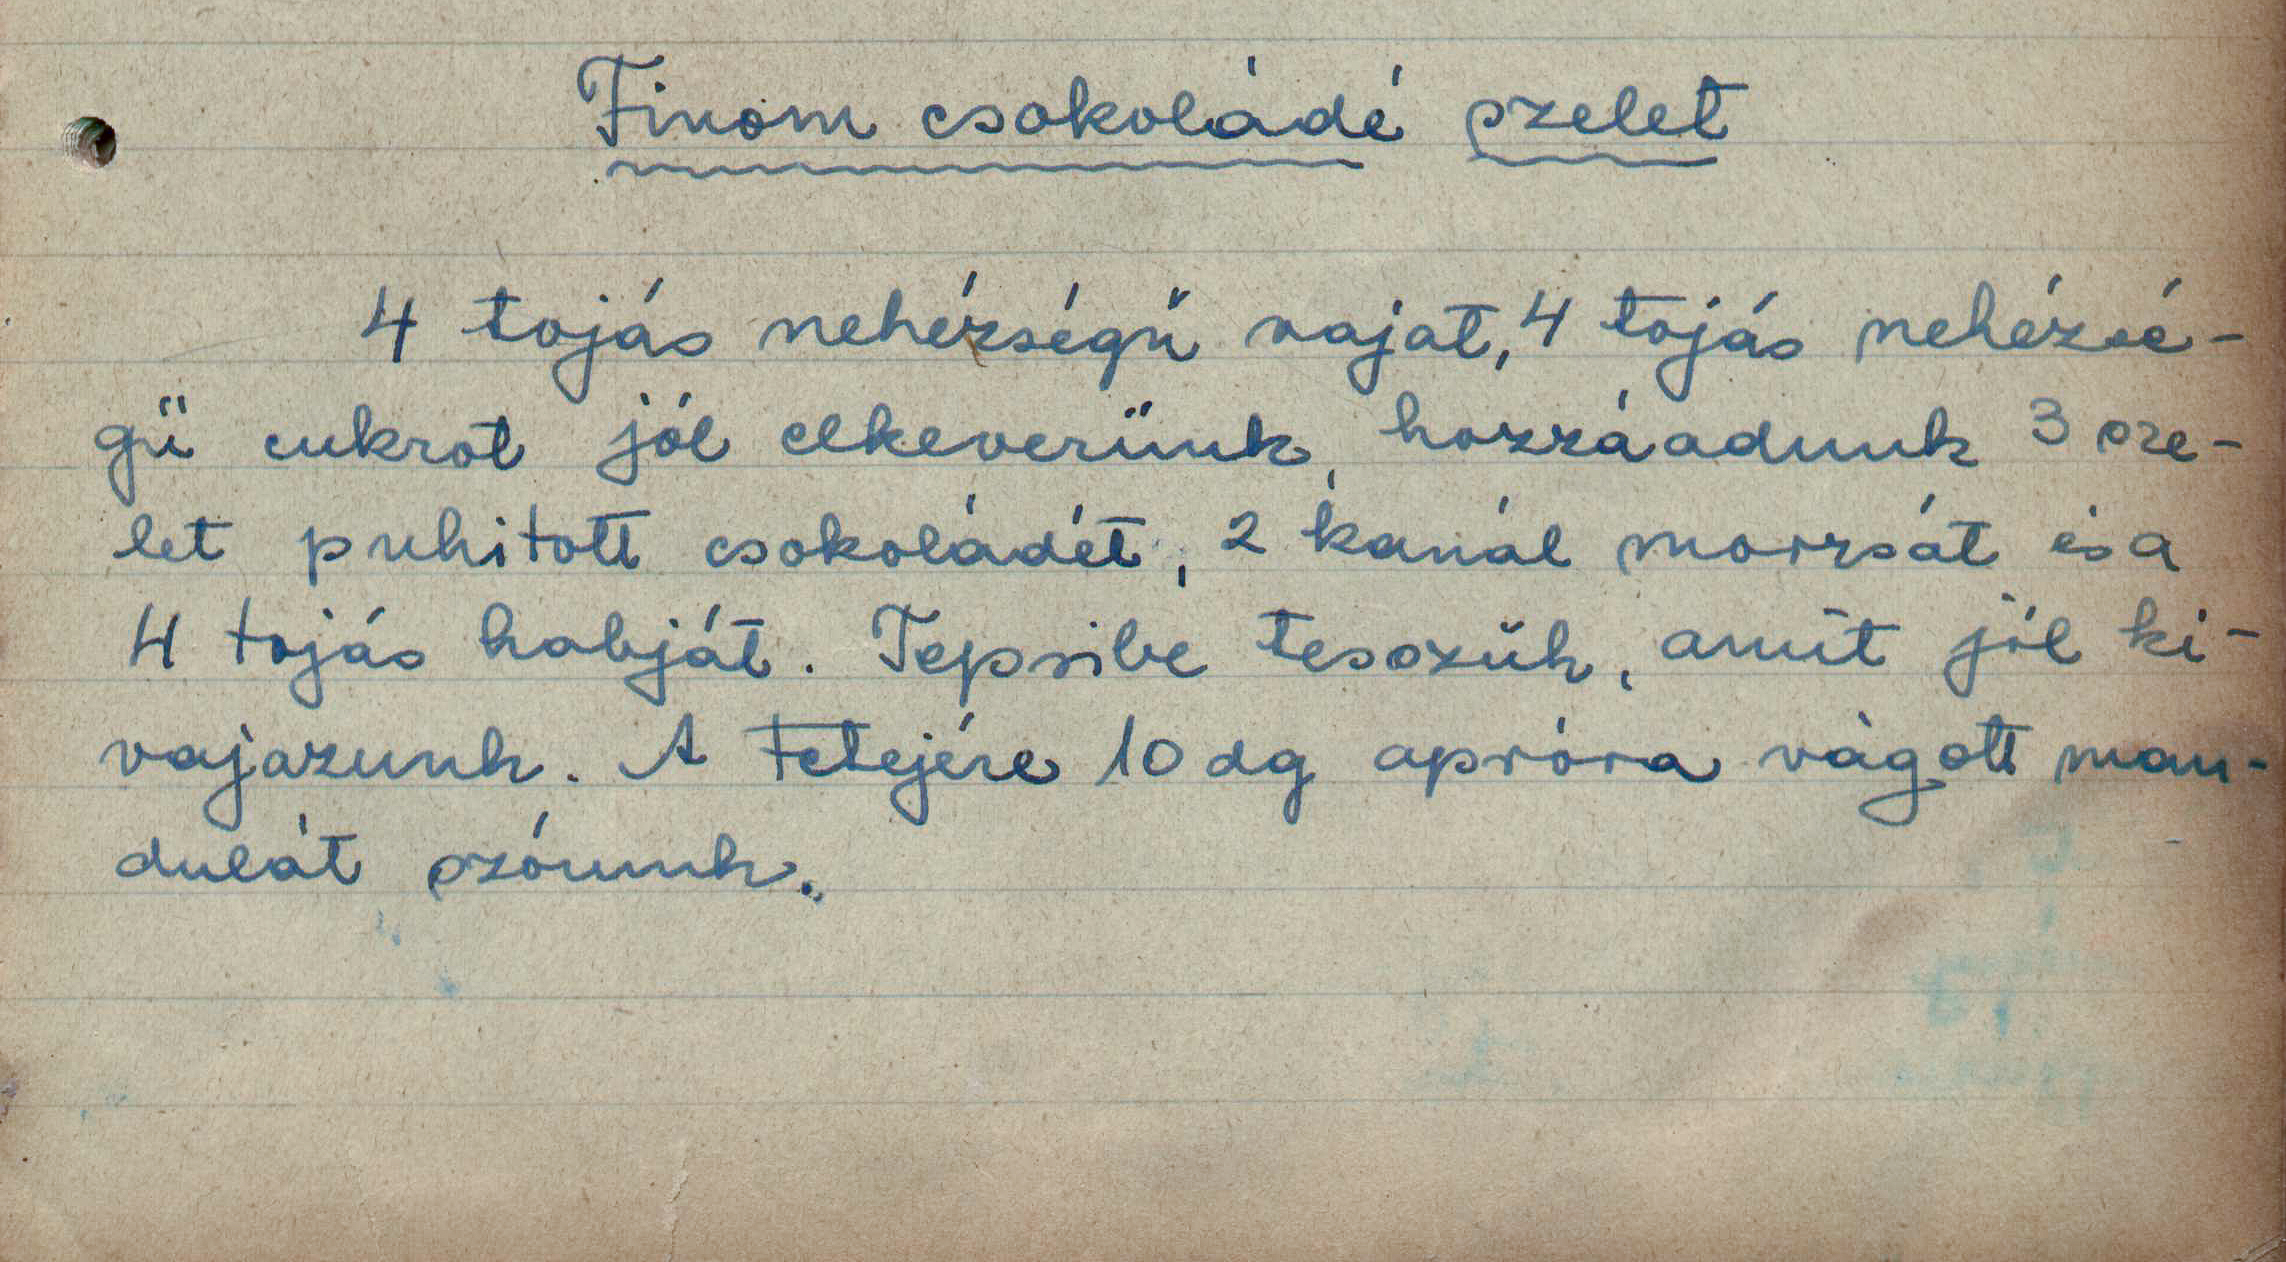 Finom csokoládé szelet
4 tojás nehézségű vajat, 4 tojás nehézsé-
gű cukrot jól elkeverünk, hozzáadunk 3 sze-
let puhitott csokoládét, 2 kanál morzsát és a
4 tojás habját. Tepsibe tesszük, amit jól ki-
vajazunk. A Tetejére 10 dg apróra vágott man-
dulát szórunk.